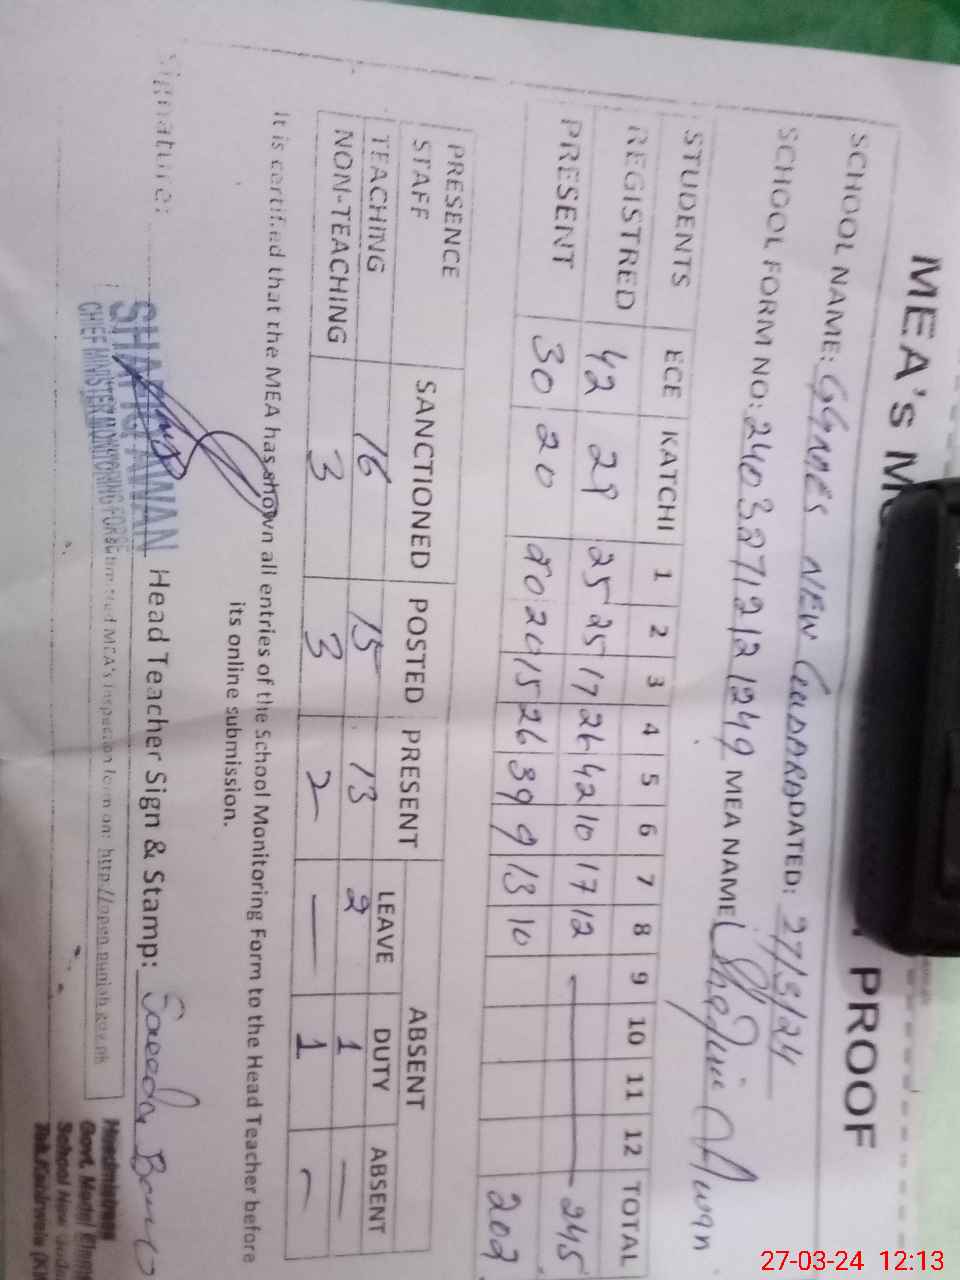 MEA'S M PROOF
SCHOOL NAME: GGMMES NEW DATED: 27/3/24
SCHOOL FORM NO: 2403271212 1249 MEA NAME Awan
STUDENTS ECE KATCHI 1 2 3 4 5 6 7 8 9 10 11 12 TOTAL
REGISTRED 42 29 25 25 17 26 42 10 17 12 — 245
PRESENT 30 20 20 20 15 26 39 9 13 10 202
PRESENCE SANCTIONED POSTED PRESENT ABSENT
STAFF LEAVE DUTY ABSENT
TEACHING 16 15 13 2 1 —
NON-TEACHING 3 3 2 — 1 —
It is certified that the MEA has shown all entries of the School Monitoring Form to the Head Teacher before
its online submission.
Signature: Head Teacher Sign & Stamp: Saeeda
AWAN
CHIEF MINISTER MONITORING FORCE
MEA's inspection form on: http://open.punjab.gov.pk
Headmistress
Govt. Model
School New
27-03-24 12:13